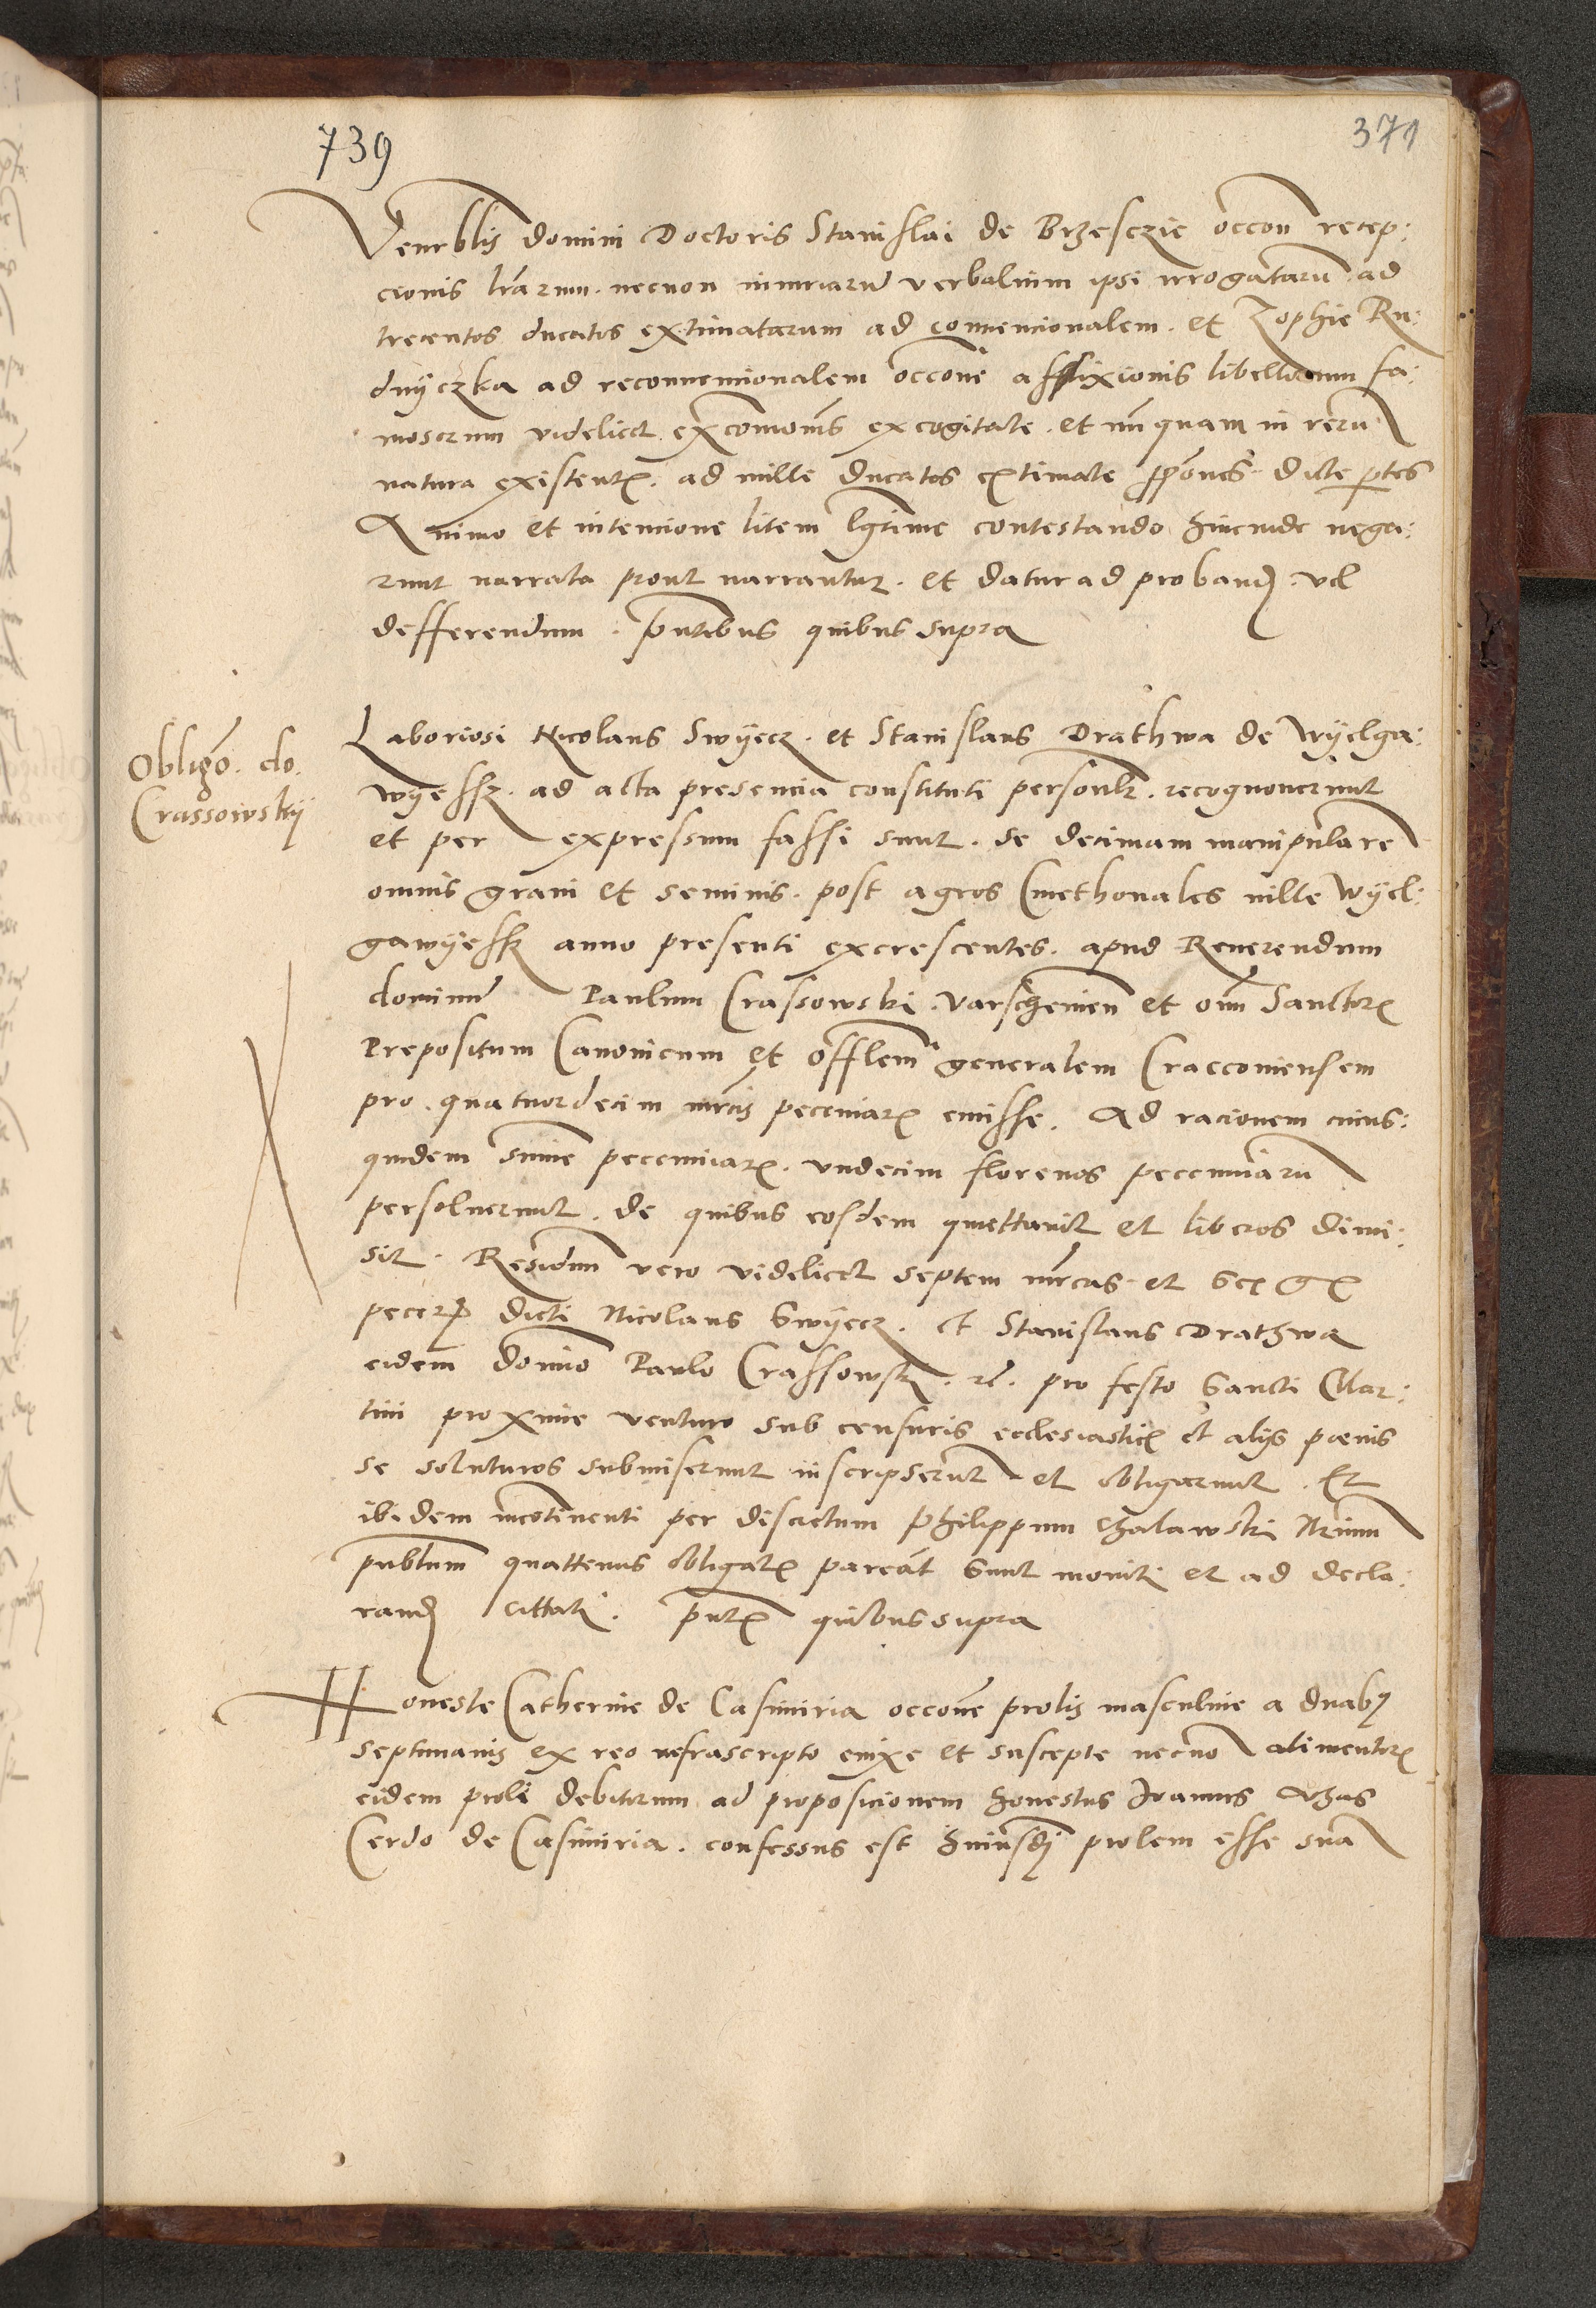 739
371
Venrblis domini Doctoris Stanislai de Brzesczie occon recep:
cionis lrarum. necnon iniuriaru verbalium ipsi irrogataru ad
trecentos ducatos extimatarum ad convencionalem. et Zophie Ru:
dnyczka ad reconvencionalem occone affixionis libellorum fa:
mosorum videlicet excomonis excogitate. et nunquam in reru
natura existentis. ad mille ducatos extimate ppones dicte ptes
Animo et intencione litem lgtime contestando hincinde nega:
runt narrata prout narrantur. et datur ad proband. vel
defferendum. pntibus quibus supra
Obligo. do.
Crassowskij
Laboriosi Nicolaus Swyecz. et Stanislaus Drathwa de Wyelga:
wyessz. ad acta presencia constituti personlr. recognoverunt
et per expressum fassi sunt. se decimam manipularem
omnis grani et seminis. post agros Cmethonales ville Wyel:
gawyessz anno presenti excrescentes. apud Reverendum
dominu Paulum Crassowski. Varschevien et omn Sanctoru
Prepositum Canonicum et offlem generalem Craccoviensem
pro quatuordecim mrcis pecuniaru emisse. Ad racionem cuius:
quidem sume pecuniaru. undecim florenos pecuniaru
persolverunt. de quibus eosdem quettavit et liberos dimi:
sit. Residuu vero videlicet septem mrcas et
dicti Nicolaus Swyecz. et Stanislaus Drathwa
eidem domino Paulo Crassowski. pro festo Sancti Mar:
tini proxime venturo sub censuris ecclesiasticis et alijs poenis
se soluturos submiserunt inscripserut et obligarunt. Et
ibidem incotinenti per discretum Philippum Chalawski Nrium
publum quattenus obligatis pareat sunt moniti et ad decla:
rand cittati. pntibus quibus supra
Honeste Catherine de Casimiria occone prolis masculine a duabus
septimanis ex reo infrascripto enixe et suscepte necno alimentoru
eidem proli debitorum ad proposicionem honestus Joannes
Cerdo de Casimiria. confessus est huiusdi prolem esse sua